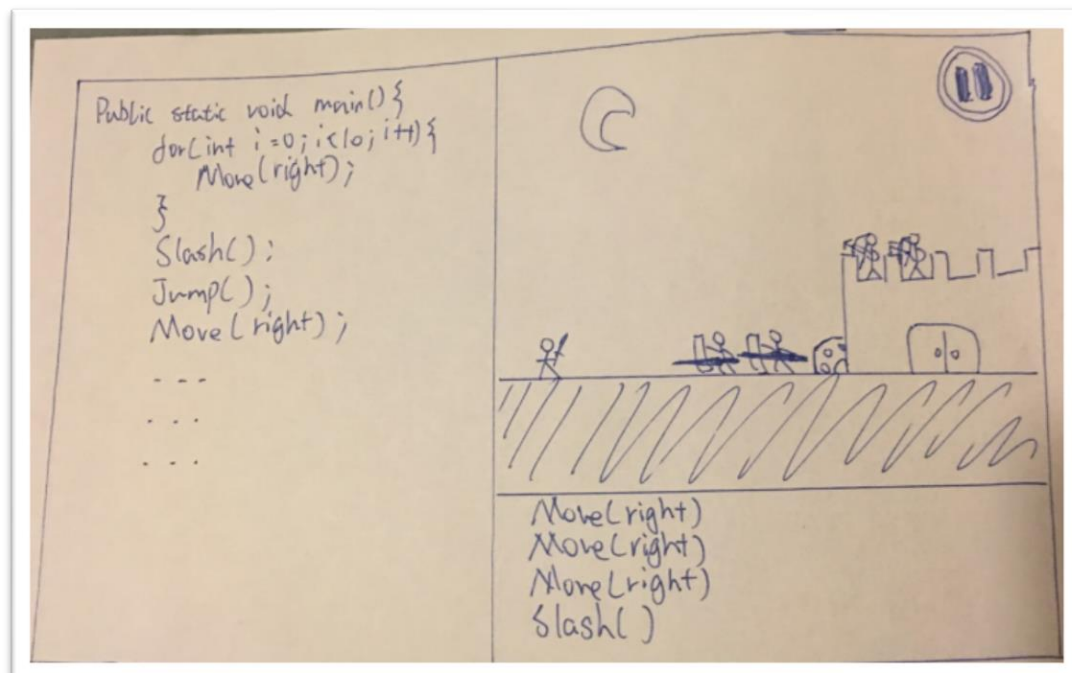 Public static void main() {
for(int i=0; i<10; i++) {
Move(right);
}
Slash();
Jump();
Move(right);
---
...
...
Move(right)
Move(right)
Move(right)
Slash()